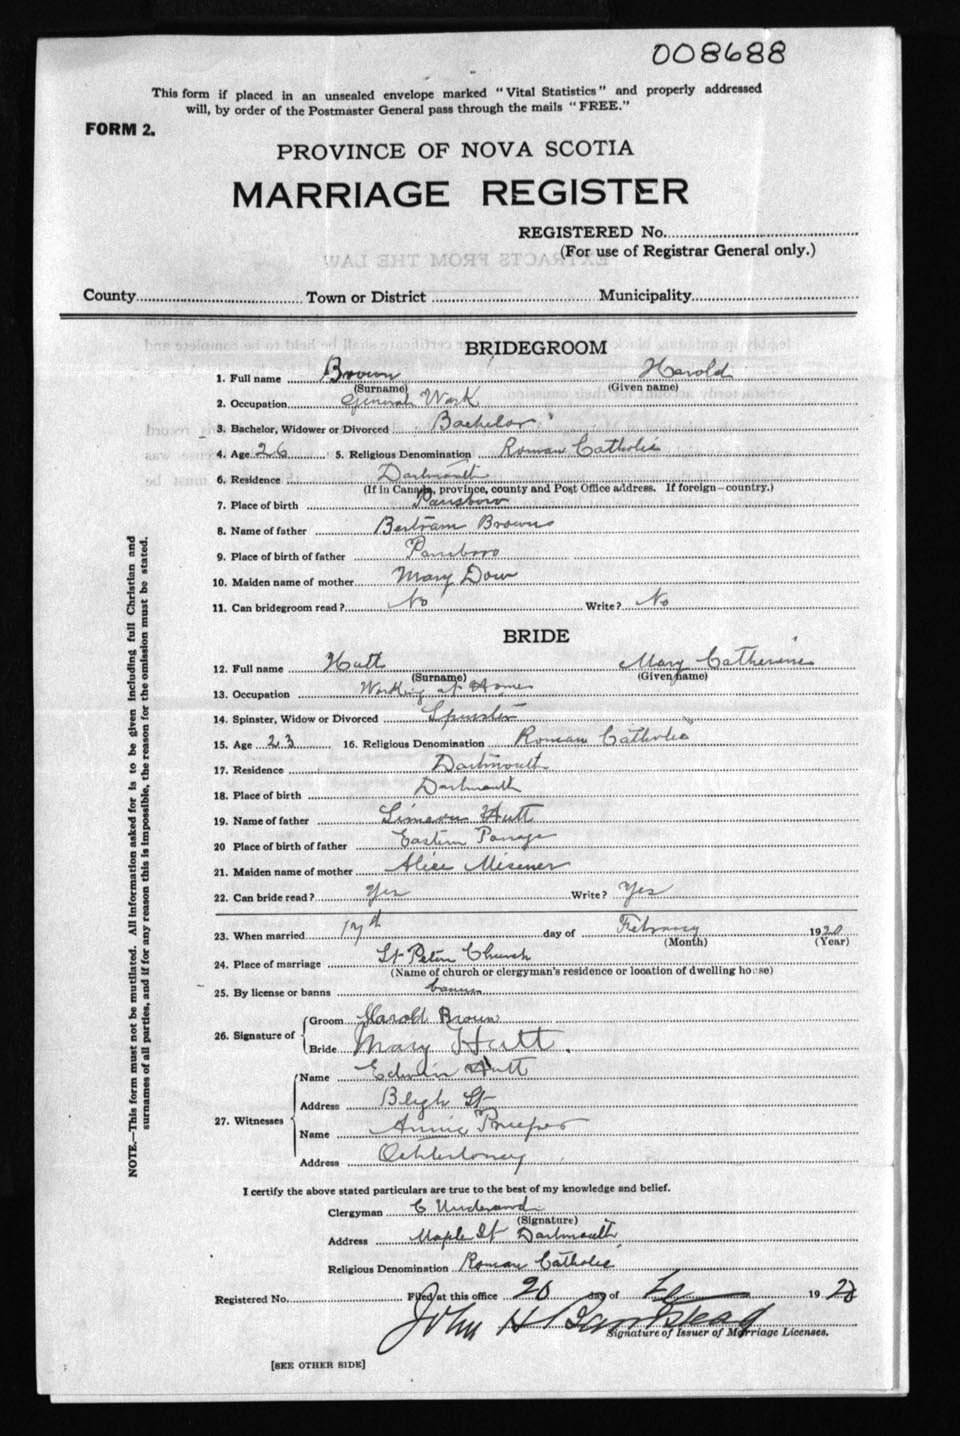 008688
This form if placed in an unsealed envelope marked "Vital Statistics" and properly addressed
will, by order of the Postmaster General pass through the mails "FREE."
FORM 2.
PROVINCE OF NOVA SCOTIA
MARRIAGE REGISTER
REGISTERED No.
(For use of Registrar General only.)
County Town or District Municipality
BRIDEGROOM
1. Full name Brown Harold
(Surname) (Given name)
2. Occupation General Work
3. Bachelor, Widower or Divorced Bachelor
4. Age 26 5. Religious Denomination Roman Catholic
6. Residence Dartmouth
(If in Canada, province, county and Post Office address. If foreign—country.)
7. Place of birth Parrsboro
8. Name of father Bertram Brown
9. Place of birth of father Parrsboro
10. Maiden name of mother Mary Dow
11. Can bridegroom read? No Write? No
BRIDE
12. Full name Hutt Mary Catherine
(Surname) (Given name)
13. Occupation Working at Home
14. Spinster, Widow or Divorced Spinster
15. Age 23 16. Religious Denomination Roman Catholic
17. Residence Dartmouth
18. Place of birth Dartmouth
19. Name of father Simeon Hutt
20 Place of birth of father Eastern Passage
21. Maiden name of mother Alice Misener
22. Can bride read? Yes Write? Yes
23. When married 17th day of February 1920
(Month) (Year)
24. Place of marriage St Peters Church
(Name of church or clergyman's residence or location of dwelling house)
25. By license or banns banns
26. Signature of Groom Harold Brown
Bride Mary Hutt.
27. Witnesses Name Edwin Hutt
Address Bligh St
Name Annie
Address Ochterloney
I certify the above stated particulars are true to the best of my knowledge and belief.
Clergyman C Underwood
(Signature)
Address Maple St Dartmouth
Religious Denomination Roman Catholic
Registered No. Filed at this office 20 day of 19
John H
Signature of Issuer of Marriage Licenses.
[SEE OTHER SIDE]
NOTE.—This form must not be mutilated. All information asked for is to be given including full Christian and
surnames of all parties, and if for any reason this is impossible, the reason for the omission must be stated.
EXTRACTS FROM THE LAW